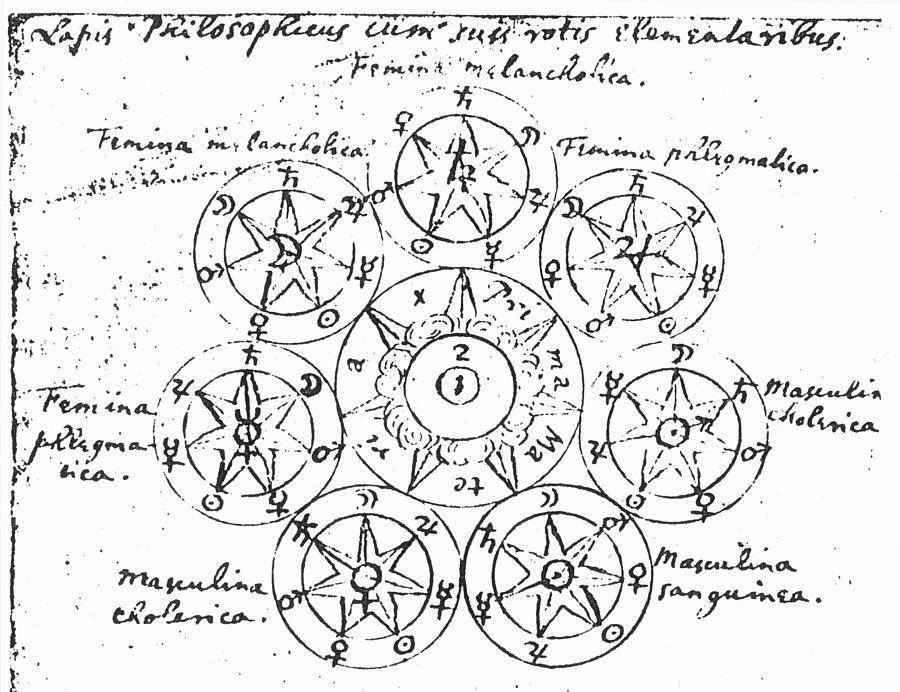 Lapis Philosophicus cum suis rotis Elementaribus.
Femina melancholica.
Femina melancholica
Femina phlegmatica.
♄
♀ ☽
♂ ♃
☉ ☿
♄
☽ ♃
☽
♂ ☿
♀ ☉
♄
☽ ♃
♃
♀ ☿
♂ ☉
x
m
a ma
2
1
Ma
te
Femina
phlegma-
tica.
♄
♃ ☽
☿ ♂
☉ ♀
Masculina
cholerica
☽
☿ ♄
♃
☉ ♀
Masculina
cholerica.
☽
♄ ♃
♂ ☿
♀ ☉
Masculina
sanguinea.
☽
♄ ♂
☿ ♀
♃ ☉